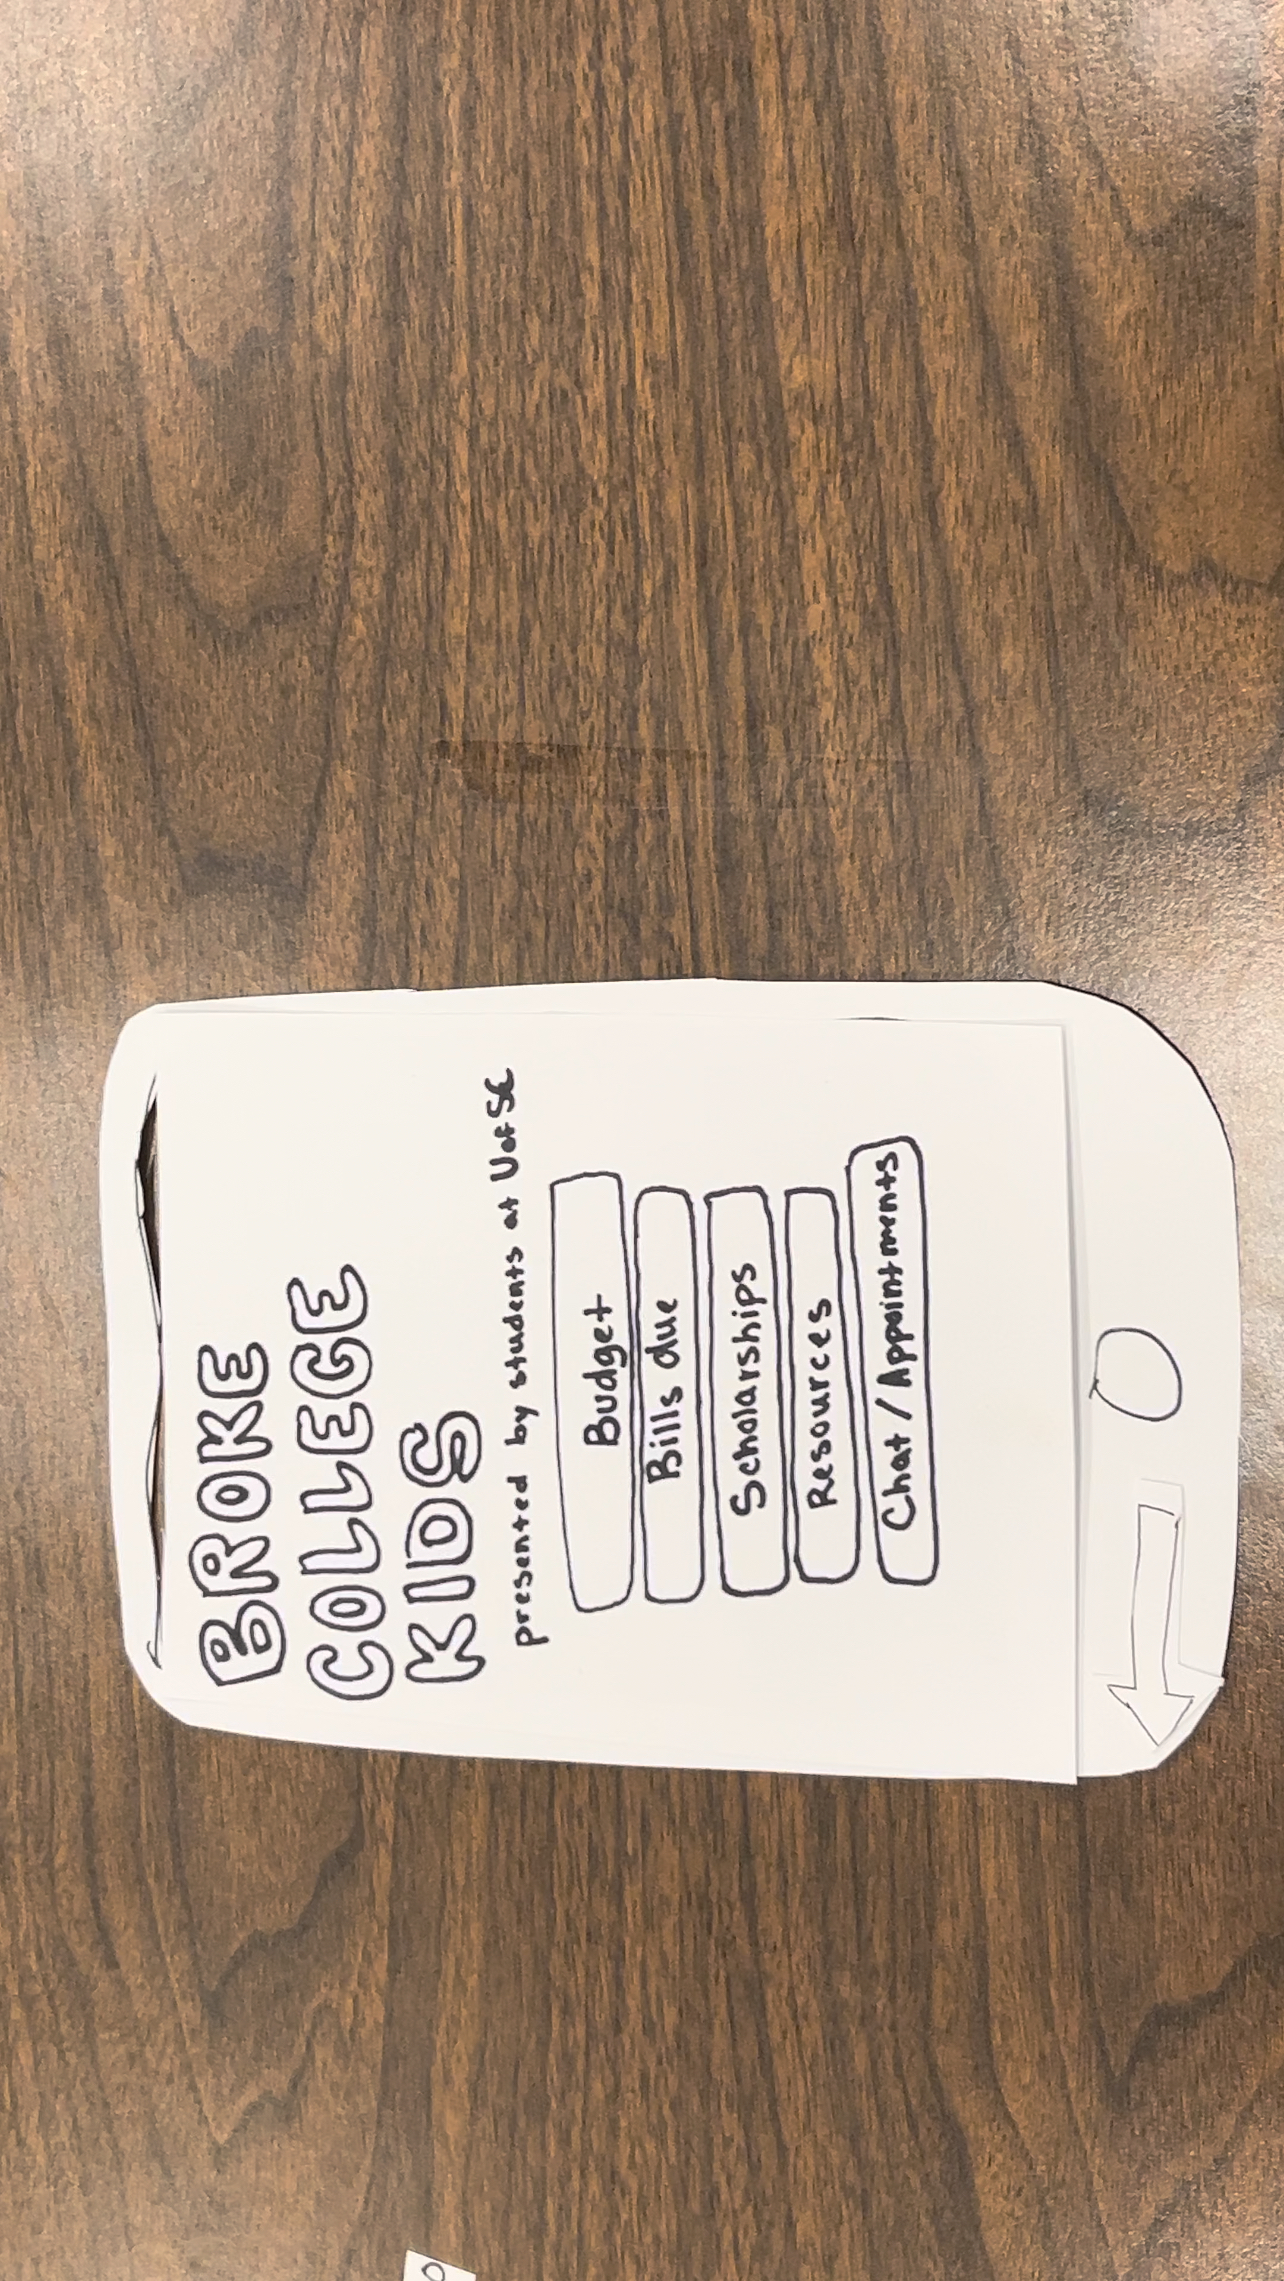 BROKE
COLLEGE
KIDS
presented by students at UofSC
Budget
Bills due
Scholarships
Resources
Chat / Appointments